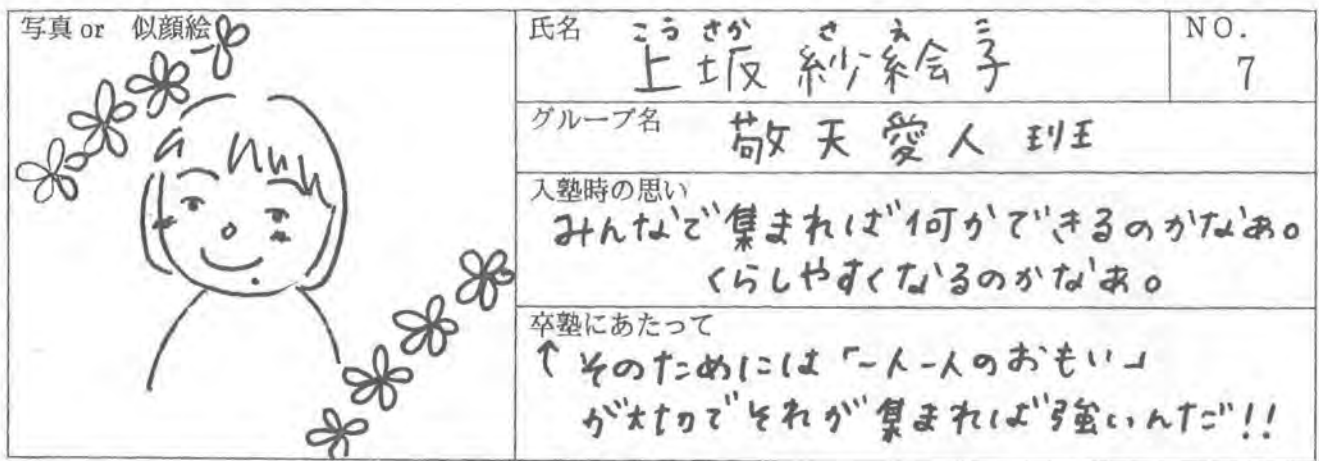 写真 or 似顔絵
氏名 こうさか さえこ
上坂 紗絵子
NO.
7
グループ名 敬天愛人 班
入塾時の思い
みんなで集まれば何かできるのかなぁ。
くらしやすくなるのかなぁ。
卒塾にあたって
↑そのためには「一人一人のおもい」
が大切でそれが集まれば強いんだ!!